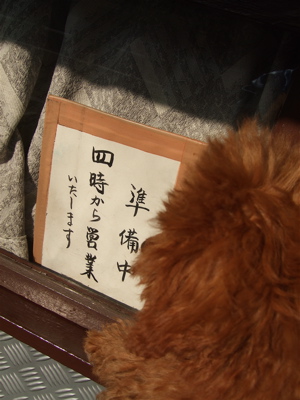 準備中
四時から営業
いたします